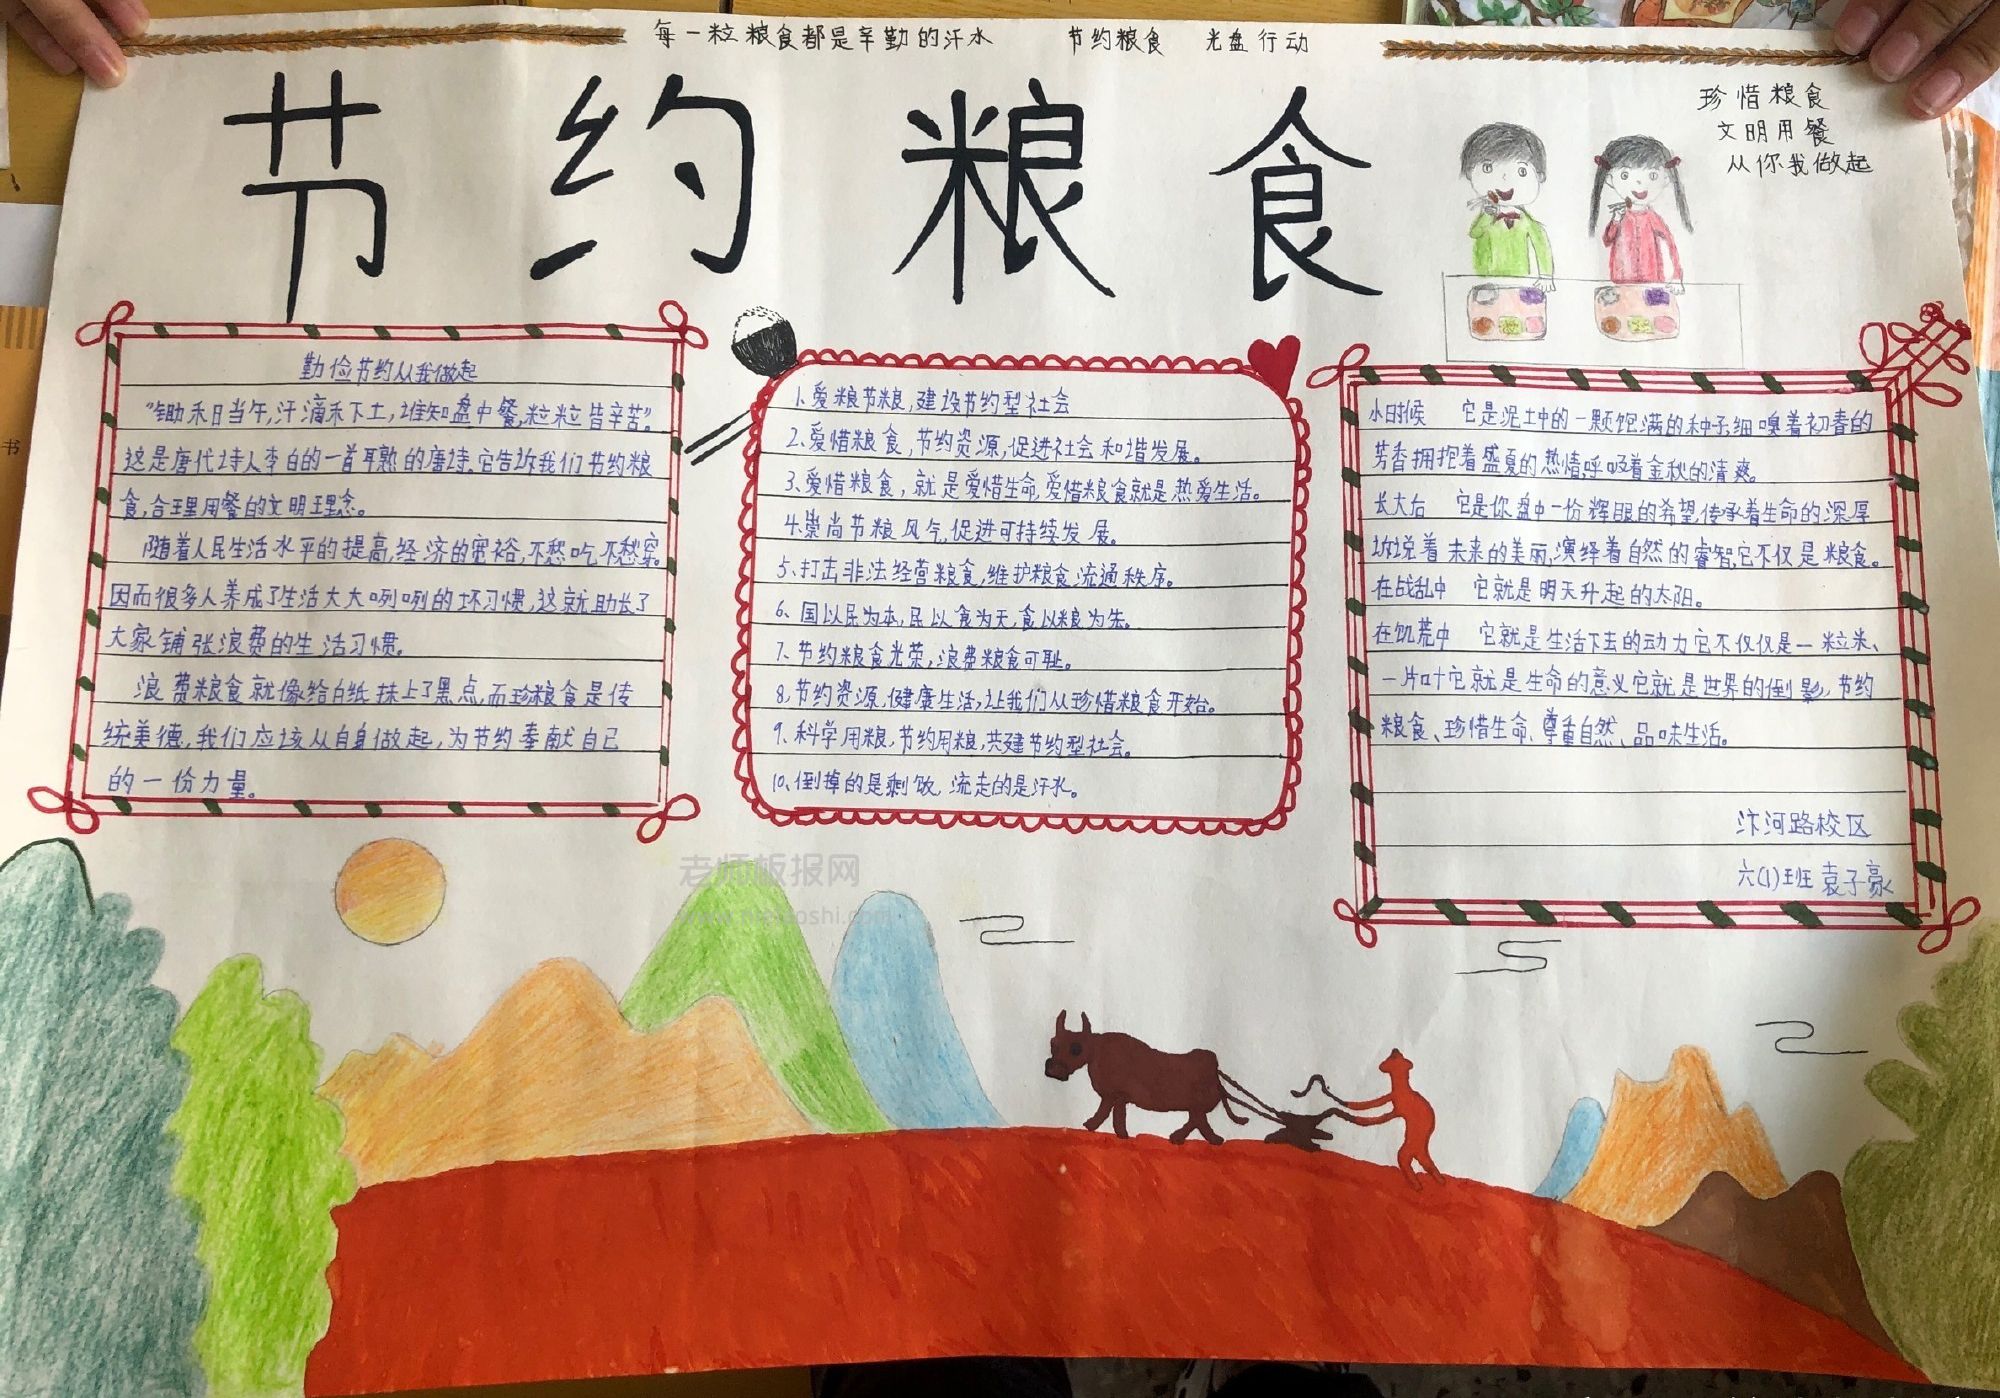 每一粒粮食都是辛勤的汗水 节约粮食 光盘行动
节约粮食
珍惜粮食
文明用餐
从你我做起
勤俭节约从我做起
“锄禾日当午,汗滴禾下土,谁知盘中餐,粒粒皆辛苦”。
这是唐代诗人李白的一首耳熟的唐诗。它告诉我们节约粮
食,合理用餐的文明理念。
随着人民生活水平的提高,经济的宽裕,不愁吃不愁穿。
因而很多人养成了生活大大咧咧的坏习惯,这就助长了
大家铺张浪费的生活习惯。
浪费粮食就像给白纸抹上了黑点,而珍粮食是传
统美德,我们应该从自身做起,为节约奉献自己
的一份力量。
1.爱粮节粮,建设节约型社会
2、爱惜粮食,节约资源,促进社会和谐发展。
3、爱惜粮食,就是爱惜生命,爱惜粮食就是热爱生活。
4、崇尚节粮风气,促进可持续发展。
5、打击非法经营粮食,维护粮食流通秩序。
6、国以民为本,民以食为天,食以粮为先。
7、节约粮食光荣,浪费粮食可耻。
8、节约资源,健康生活,让我们从珍惜粮食开始。
9、科学用粮,节约用粮,共建节约型社会。
10、倒掉的是剩饭,流走的是汗水。
小时候 它是泥土中的一颗饱满的种子,细嗅着初春的
芳香拥抱着盛夏的热情,呼吸着金秋的清爽。
长大后 它是你盘中一份辉眼的希望,传承着生命的深厚
诉说着未来的美丽,演绎着自然的睿智,它不仅是粮食。
在战乱中 它就是明天升起的太阳。
在饥荒中 它就是生活下去的动力它不仅仅是一粒米、
一片叶它就是生命的意义它就是世界的倒影,节约
粮食、珍惜生命、尊重自然、品味生活。
汴河路校区
六(1)班 袁子豪
老师板报网